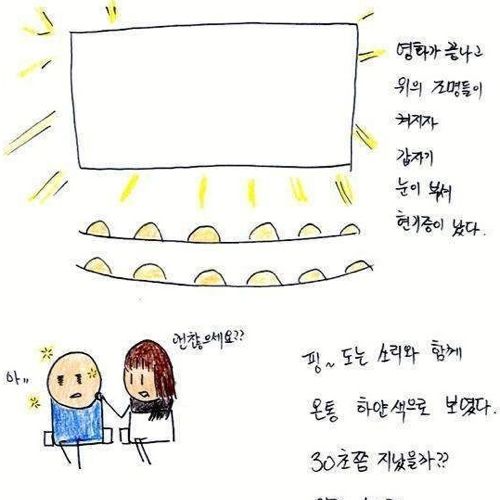 영화가 끝나고
위의 조명들이
켜지자
갑자기
눈이 부셔
현기증이 났다.
괜찮으세요??
아..
핑~ 도는 소리와 함께
온통 하얀색으로 보였다.
30초쯤 지났을까??